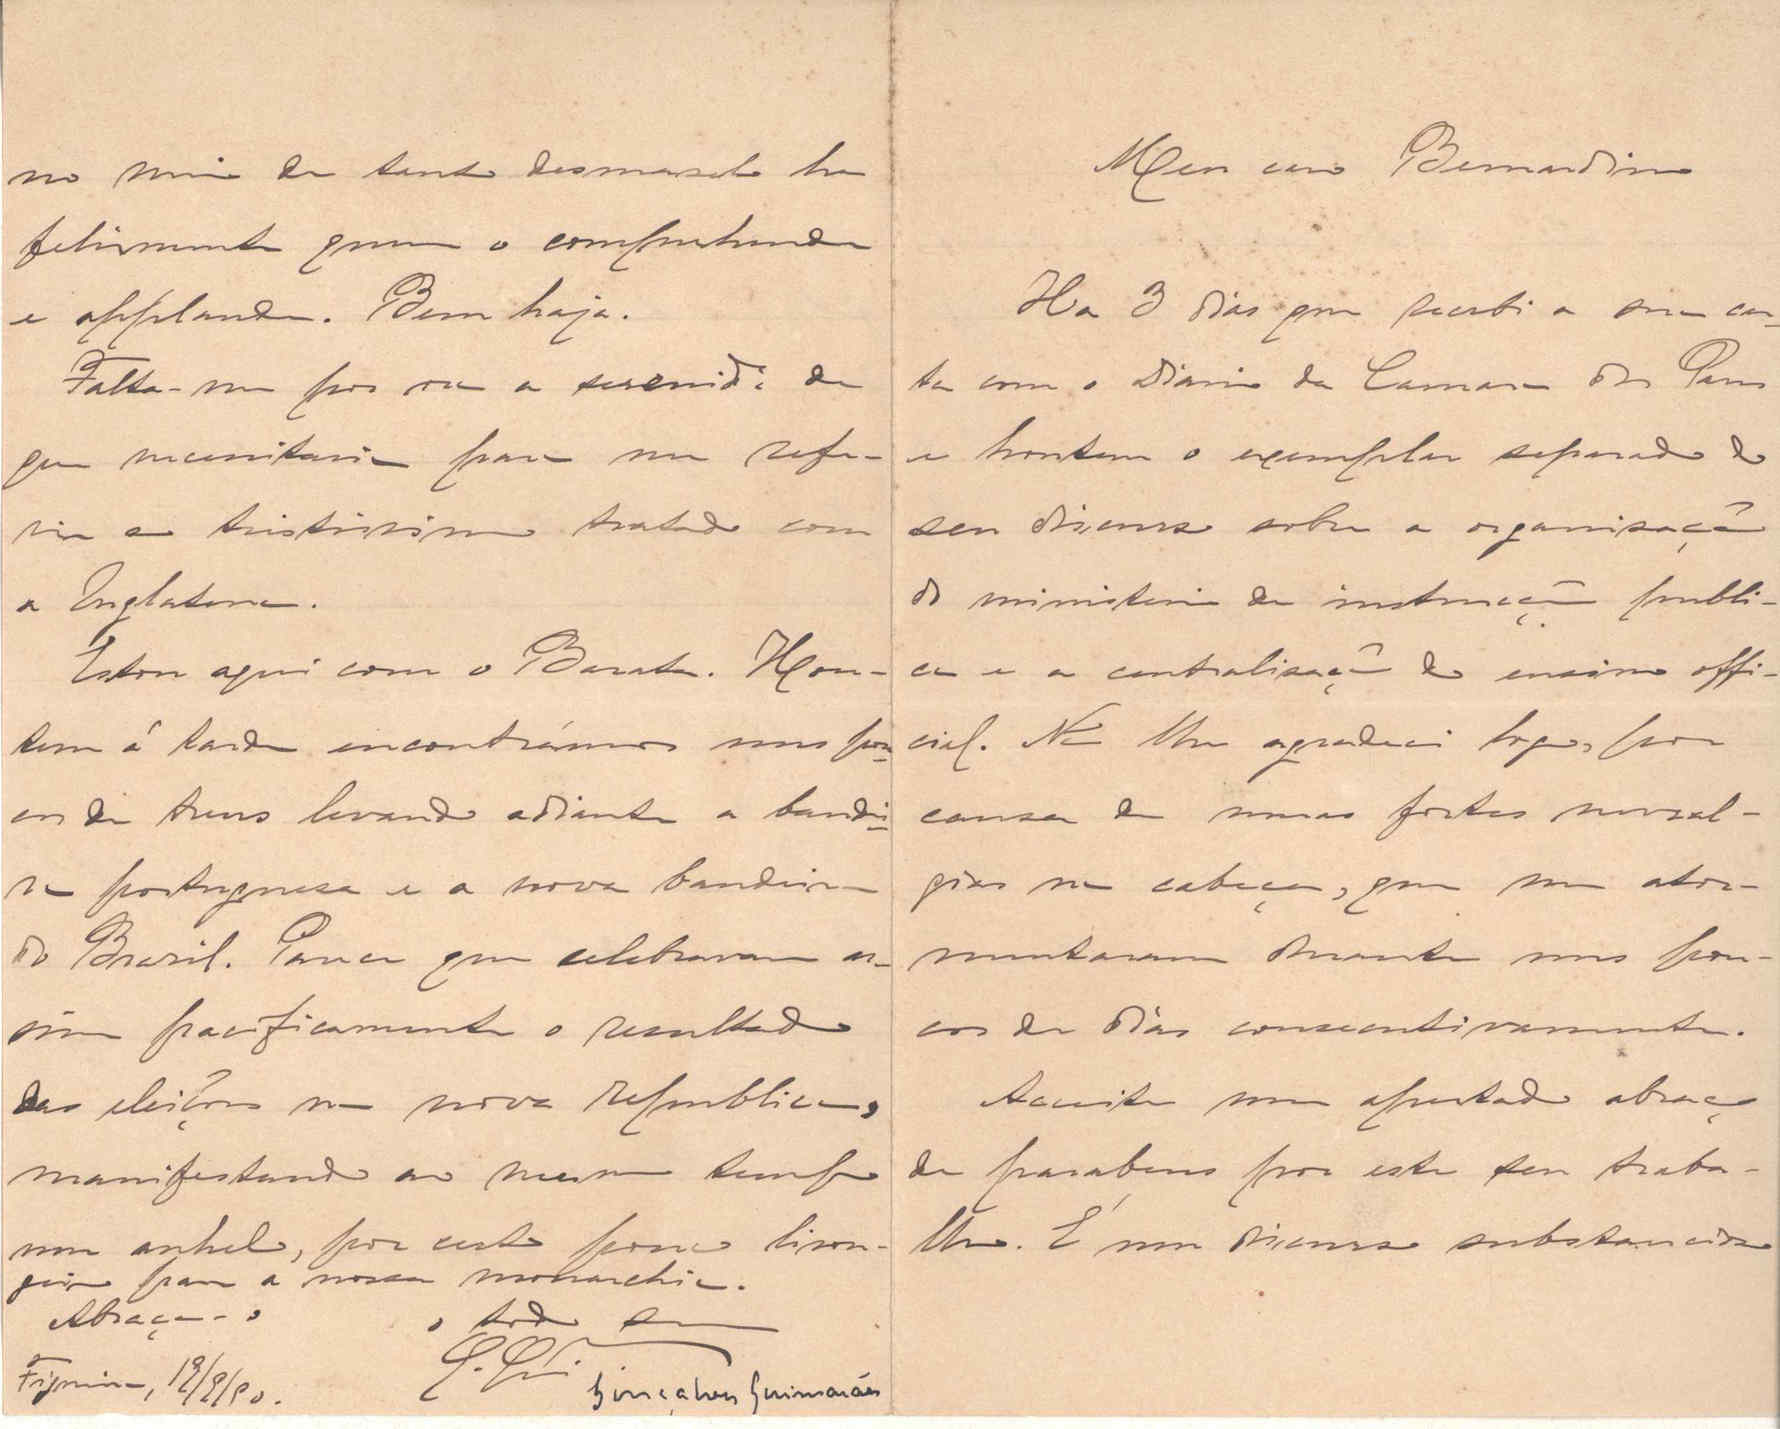 Meu caro Bernardino
Ha 3 dias que recebi a sua car-
ta com o Diario da Camara dos Pares
e hontem o exemplar separado do
seu discurso sobre a organisação
do ministerio da instrucção publi-
ca e a centralisação do ensino offi-
cial. Não lhe agradeci logo, por
causa de umas fortes nevral-
gias na cabeça, que me ator-
mentaram durante uns pou-
cos de dias consecutivamente.
Acceite um apertado abraço
de parabens por este seu traba-
lho. É um discurso substancioso
no meio de tanto desmancho ha
felizmente quem o comprehenda
e applauda. Bem haja.
Falta-me por ora a serenid.e de
que necessitaria para me refe-
rir ao tristissimo tratado com
a Inglaterra.
Estou aqui com o Barata. Hon-
tem á tarde encontrámos uns pou-
cos de trens levando adiante a bandei-
ra portuguesa e a nova bandeira
do Brazil. Parece que celebravam as-
sim pacificamente o resultado
das eleições na nova republica,
manifestando ao mesmo tempo
um anhelo, por certo pouco lison-
geiro para a nossa monarchia.
Abraça-o o todo seu
Figueira, 19/9/90. G. Gui
Gonçalves Guimarães